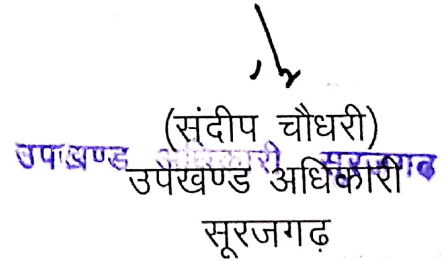 (संदीप चौधरी)
उपखण्ड अधिकारी सूरजगढ
उपखण्ड अधिकारी
सूरजगढ़